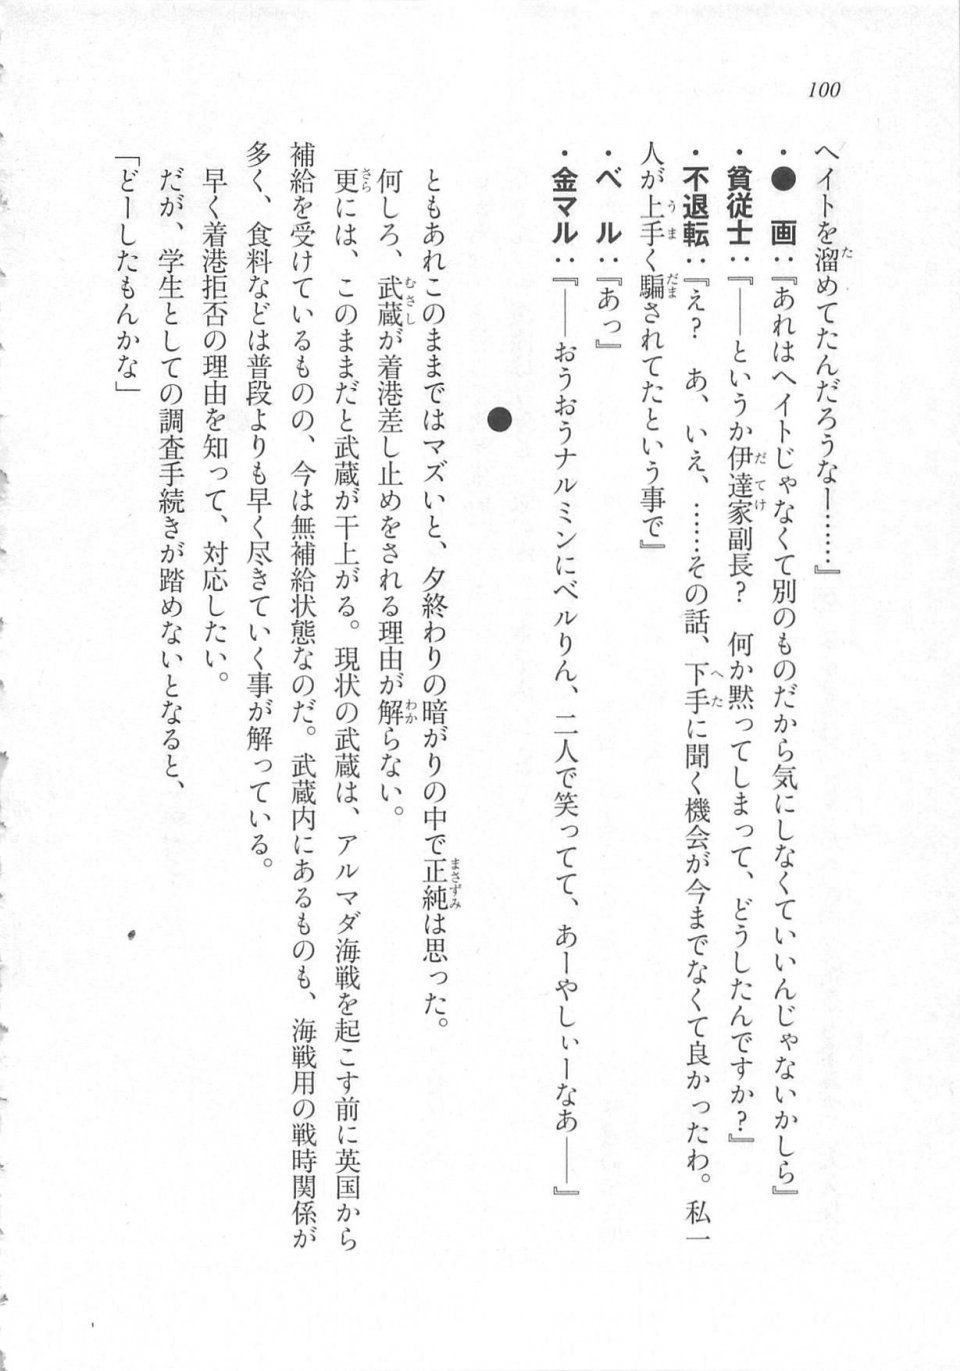 100
ヘイトを溜めてたんだろうなー……』
・●　画：『あれはヘイトじゃなくて別のものだから気にしなくていいんじゃないかしら』
・貧従士：『――というか伊達家副長？　何か黙ってしまって、どうしたんですか？』
・不退転：『え？　あ、いえ、……その話、下手に聞く機会が今までなくて良かったわ。私一
人が上手く騙されてたという事で』
・ベ　ル：『あっ』
・金マル：『――おうおうナルミンにベルりん、二人で笑ってて、あーやしぃーなあ――』
●
ともあれこのままではマズいと、夕終わりの暗がりの中で正純は思った。
何しろ、武蔵が着港差し止めをされる理由が解らない。
更には、このままだと武蔵が干上がる。現状の武蔵は、アルマダ海戦を起こす前に英国から
補給を受けているものの、今は無補給状態なのだ。武蔵内にあるものも、海戦用の戦時関係が
多く、食料などは普段よりも早く尽きていく事が解っている。
早く着港拒否の理由を知って、対応したい。
だが、学生としての調査手続きが踏めないとなると、
「どーしたもんかな」